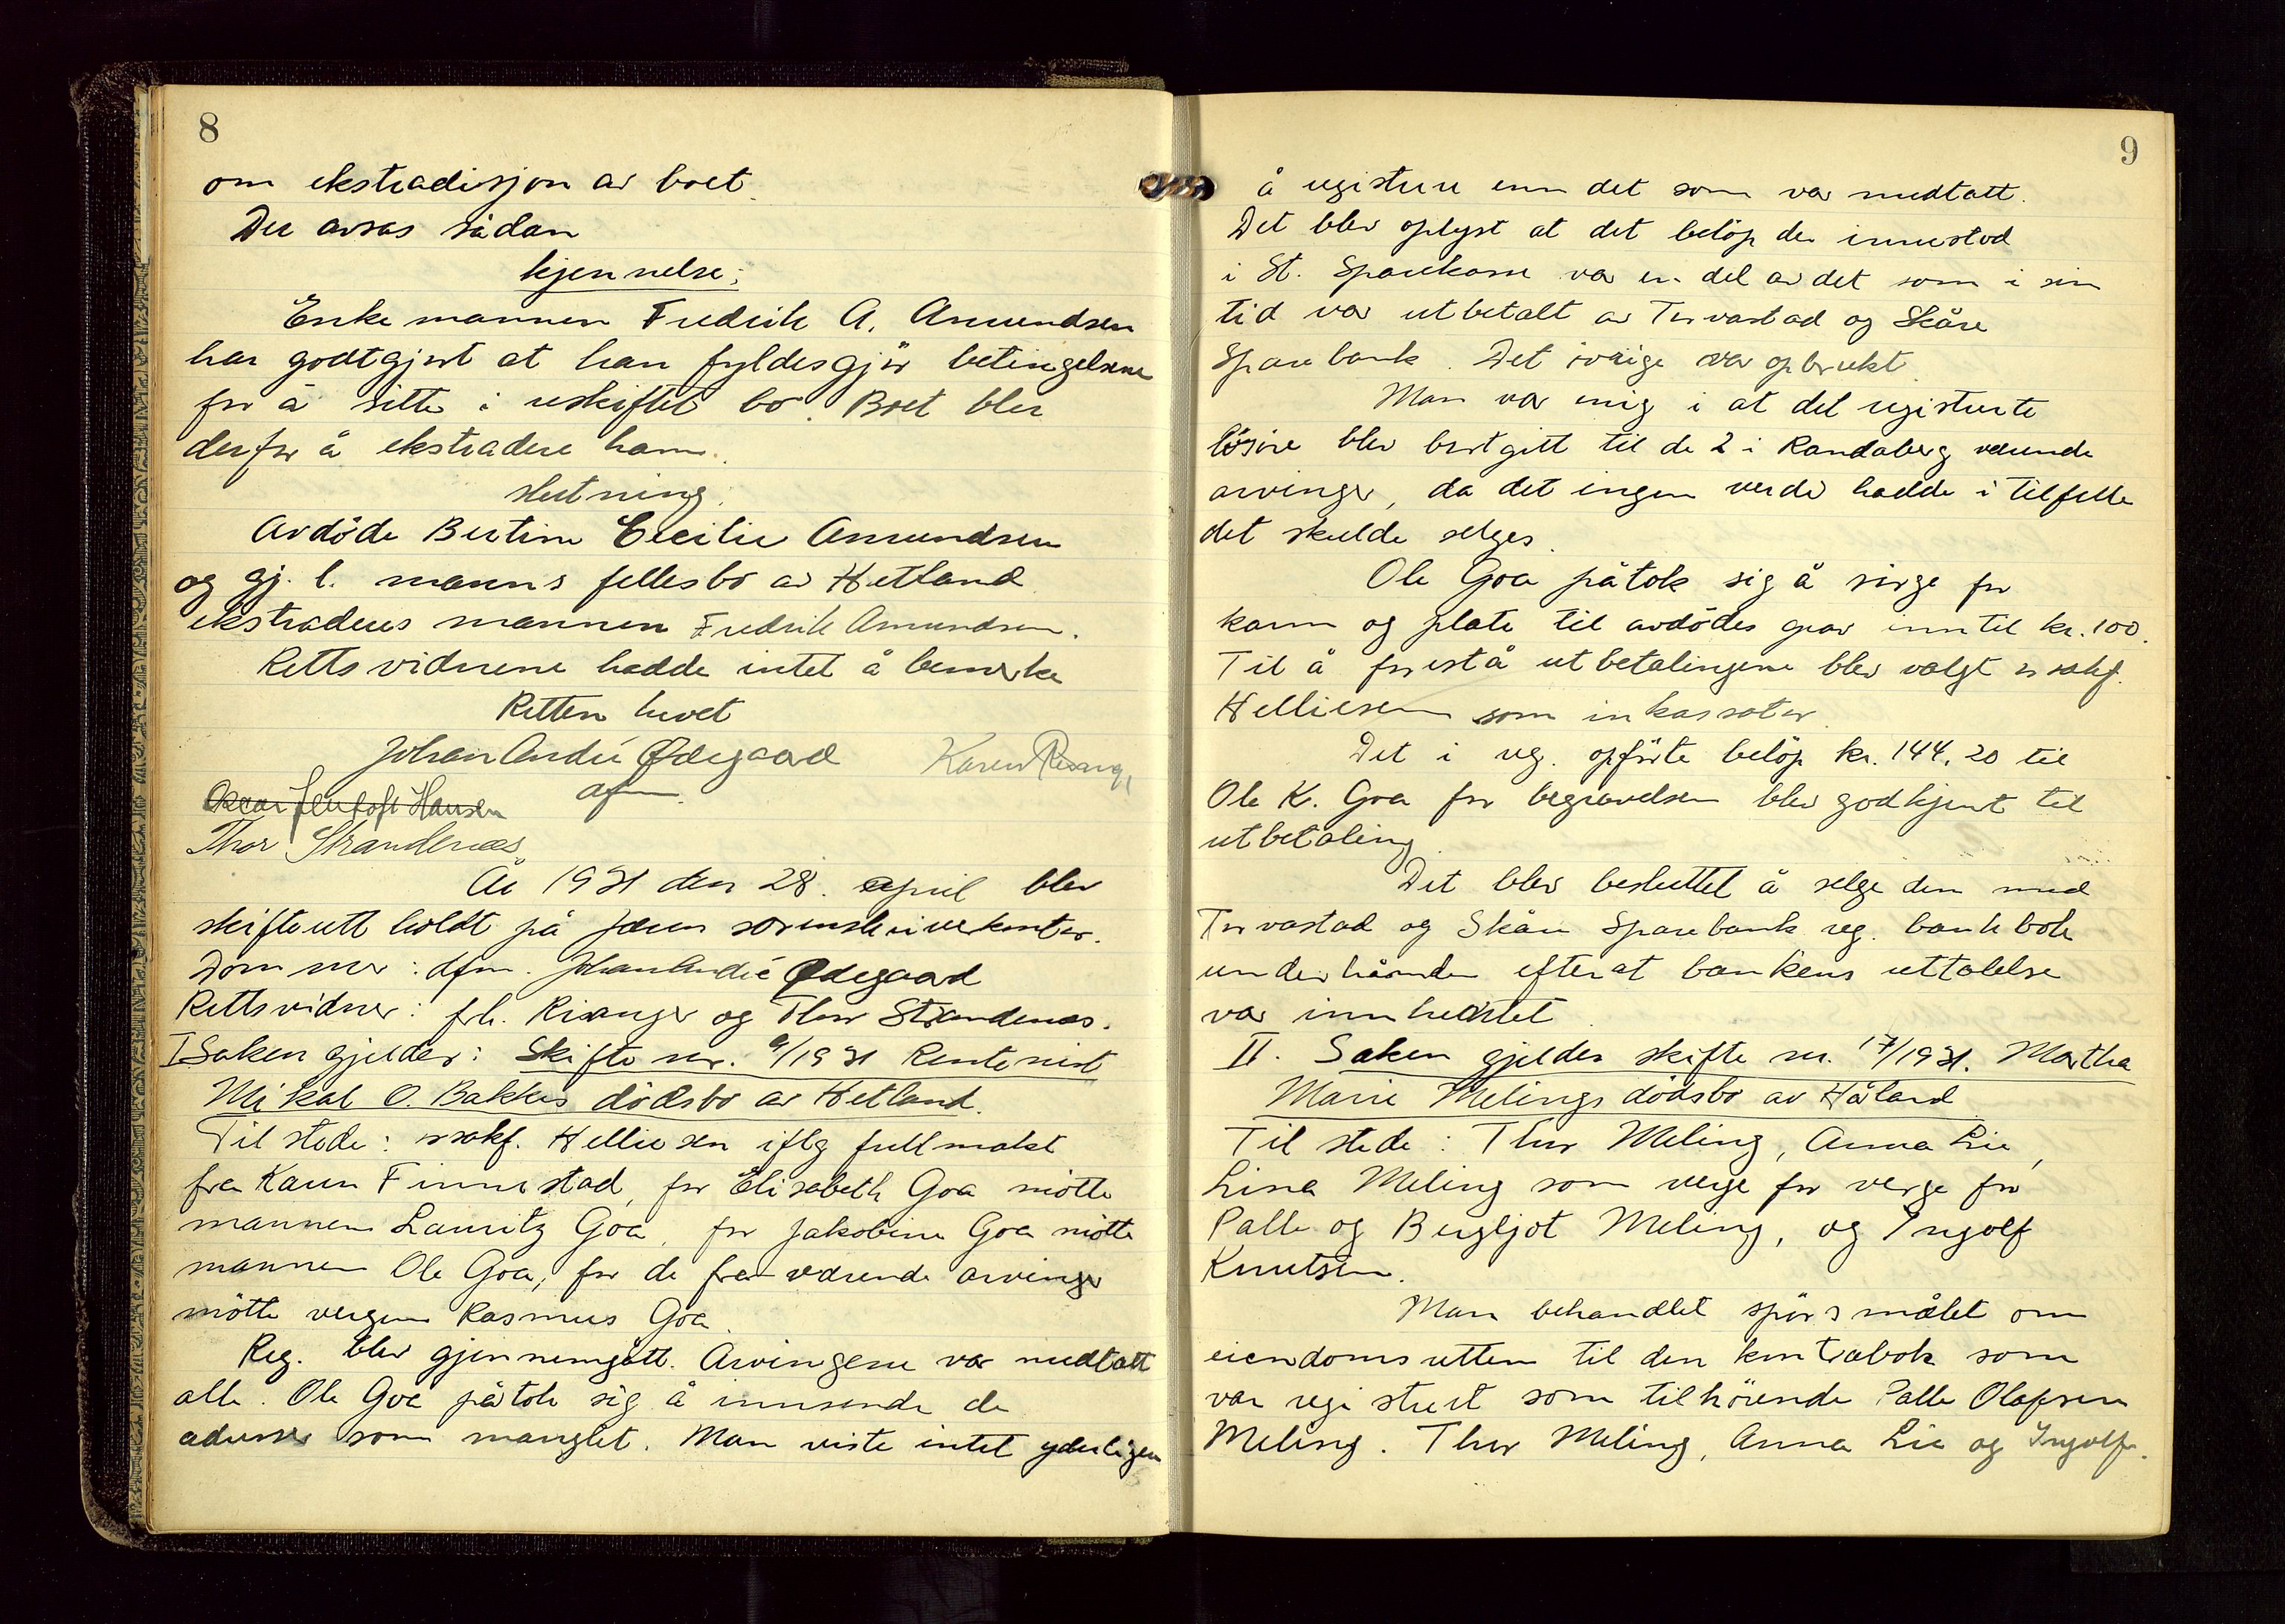 8
om ekstradisjon av boet.
Der avsas sådan
kjennelse:
Enkemannen Fredrik A. Amundsen
har godtgjort at han fyldesgjør betingelsene
for å sitte i uskiftet bo. Boet blir
derfor å ekstradere ham.
slutning:
Avdøde Bertine Cecilie Amundsen
og gj. l. manns fellesbo av Hetland
ekstraderes mannen Fredrik Amundsen.
Rettsvidnene hadde intet å bemerke
Retten hevet
Johan André Ødegaard Karen Risanger
dfm.
Oscar Jentoft Hansen
Thor Strandenæs
År 1931 den 28. april blev
skifterett holdt på Jæren sorenskriverkontor.
Dommer: dfm. Johan André Ødegaard
Rettsvidner: frk. Risanger og Thor Strandenæs.
I Saken gjelder: Skifte nr. 9/1931 Rentenist
Mikal O. Bakkes dødsbo av Hetland.
Til stede: o.r.sakf. Helliesen iflg fullmakt
fra Karen Finnestad, for Elisabeth Goa møtte
mannen Lauritz Goa, for Jakobine Goa møtte
mannen Ole Goa, for de fraværende arvinger
møtte vergen Rasmus Goa.
Reg. blev gjennemgått. Arvingene var medtatt
alle. Ole Goa påtok sig å innsende de
adresser som manglet. Man viste intet yderligere
9
å registrere enn det som var medtatt.
Det blev oplyst at det beløp der innestod
i St. Sparekasse var en del av det som i sin
tid var utbetalt av Torvastad og Skåre
Sparebank. Det øvrige var opbrukt.
Man var enig i at det registrerte
løsøre blev bortgitt til de 2 i Randaberg værende
arvinger, da det ingen verdi hadde i tilfelle
det skulde selges.
Ole Goa påtok sig å sørge for
karm og plate til avdødes grav inntil kr. 100.
Til å forestå utbetalingene blev valgt o.r.sakf.
Helliesen som inkassator.
Det i reg. opførte beløp kr. 144,20 til
Ole K. Goa for begravelsen blev godkjent til
utbetaling.
Det blev besluttet å selge den med
Torvastad og Skåre Sparebank reg. bankbok
underhånden efterat bankens uttalelse
var innhentet.
II. Saken gjelder skifte nr. 17/1931. Martha
Marie Melings dødsbo av Håland
Til stede: Thor Meling, Anna Lie,
Lina Meling som verge for verge for
Palle og Bergljot Meling, og Ingolf
Knutsen.
Man behandlet spørsmålet om
eiendomsretten til den kontrabok som
var registrert som tilhørende Palle Olafsen
Meling. Thor Meling, Anna Lie og Ingolf